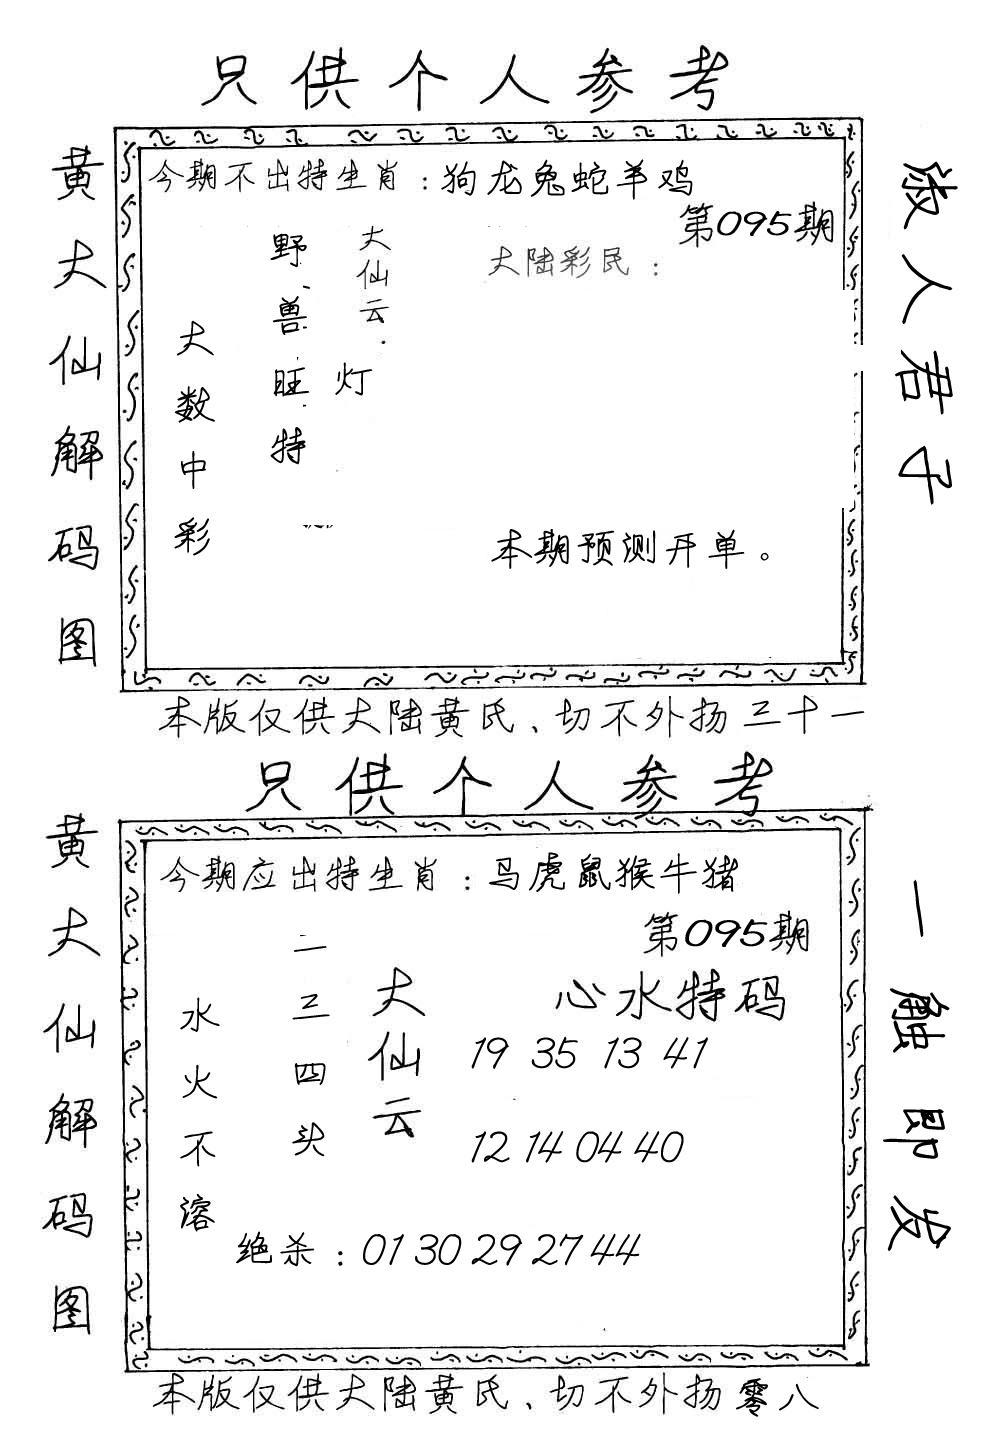 只供个人参考
黄大仙解码图
今期不出特生肖：狗龙兔蛇羊鸡
第095期
大陆彩民：
大仙云：
灯
野兽旺特
大数中彩
本期预测开单。
淑人君子
本版仅供大陆黄氏、切不外扬三十一
只供个人参考
黄大仙解码图
今期应出特生肖：马虎鼠猴牛猪
第095期
心水特码
19 35 13 41
12 14 04 40
大仙云
一三四头
水火不溶
绝杀：01 30 29 27 44
一触即发
本版仅供大陆黄氏、切不外扬零八